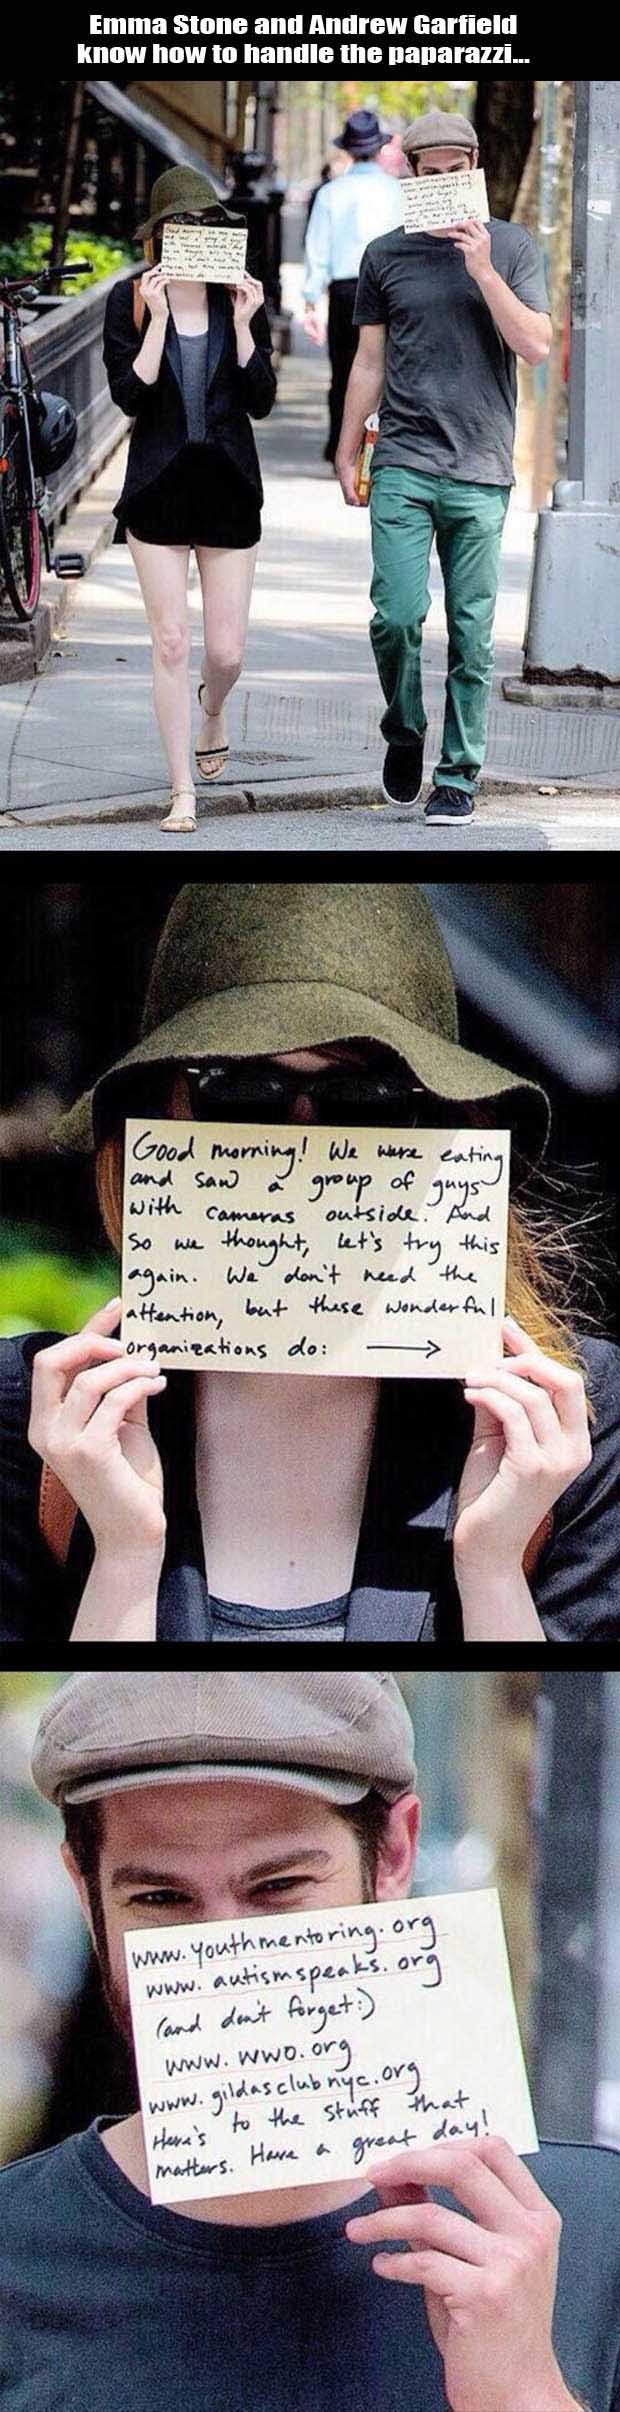 Emma Stone and Andrew Garfield
know how to handle the paparazzi...
Good morning! We were eating
and saw a group of guys
with cameras outside. And
so we thought, let's try this
again. We don't need the
attention, but these wonderful
organizations do: →
www.youthmentoring.org
www.autismspeaks.org
(and don't forget:)
www.wwo.org
www.gildasclubnyc.org
Here's to the stuff that
matters. Have a great day!